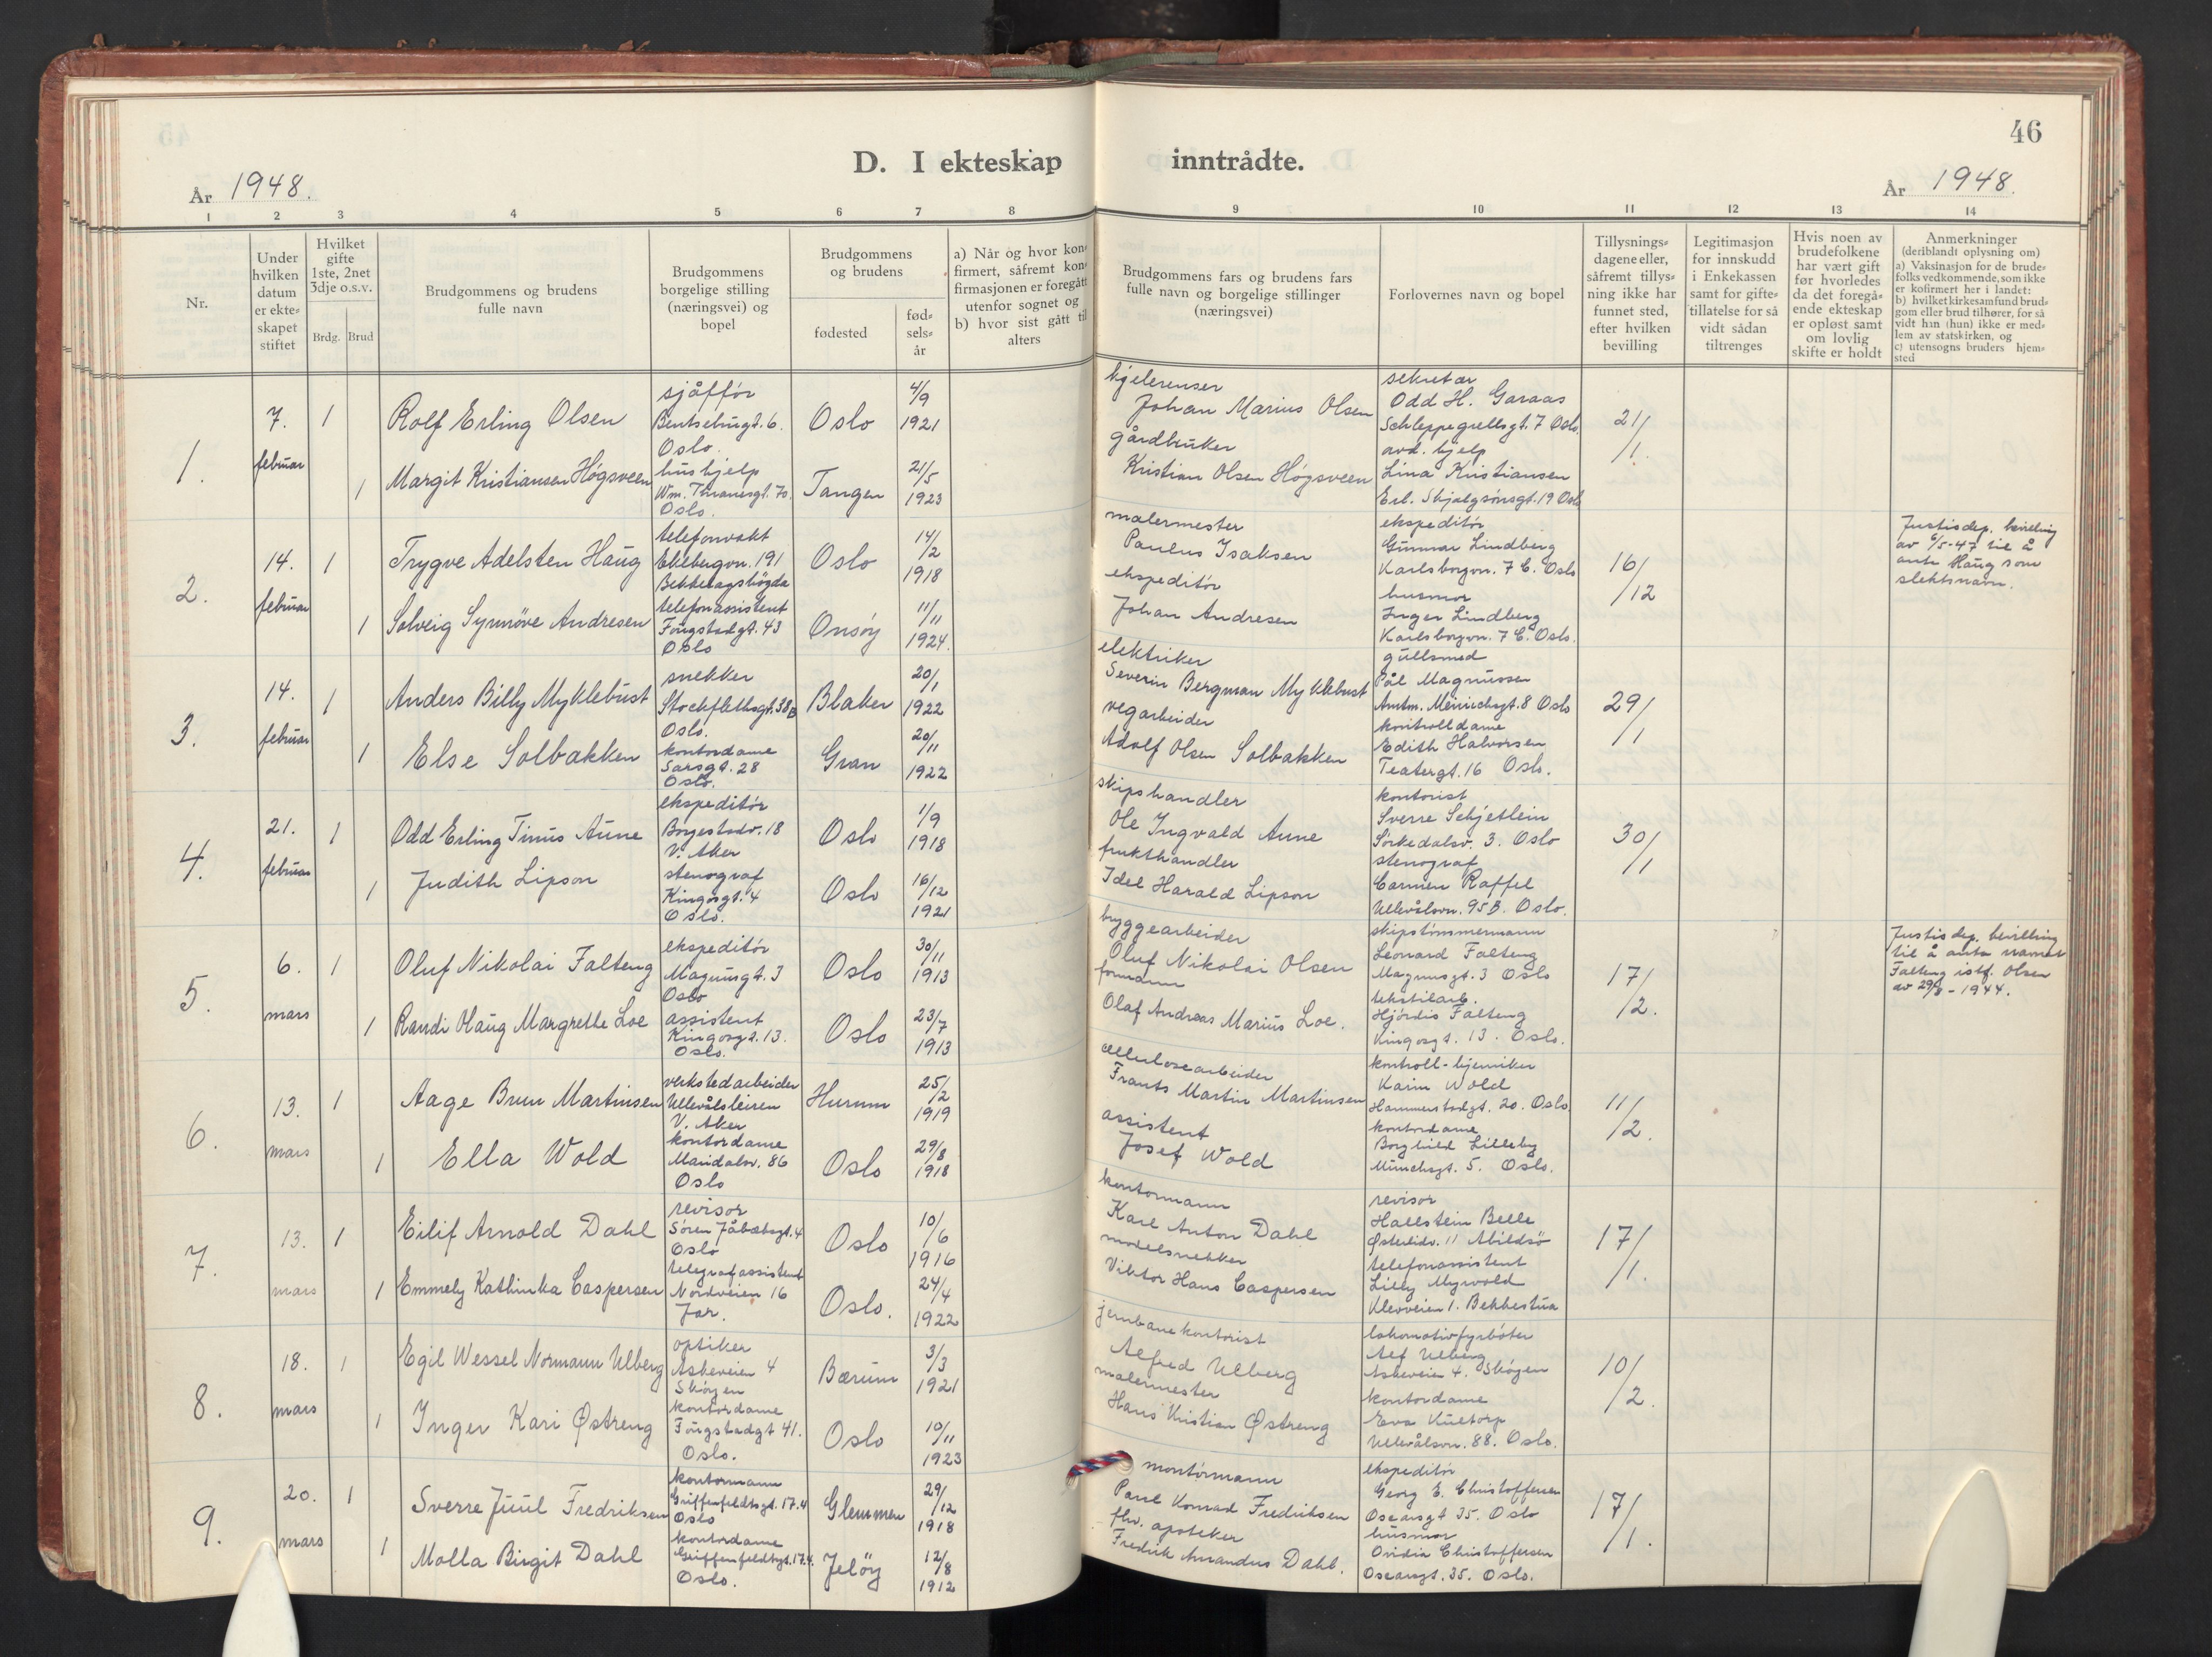 46
D. I ekteskap inntrådte.
År 1948.
År 1948.
1 2 3 4 5 6 7 8 9 10 11 12 13 14
Nr.
Under
hvilken
datum
er ekte-
skapet
stiftet
Hvilket
gifte
1ste, 2net
3dje o.s.v.
Brdg. Brud
Brudgommens og brudens
fulle navn
Brudgommens
borgelige stilling
(næringsvei) og
bopel
Brudgommens
og brudens
fødested
fød-
sels-
år
a) Når og hvor kon-
firmert, såfremt kon-
firmasjonen er foregått
utenfor sognet og
b) hvor sist gått til
alters
Brudgommens fars og brudens fars
fulle navn og borgelige stillinger
(næringsvei)
Forlovernes navn og bopel
Tillysnings-
dagene eller,
såfremt tillys-
ning ikke har
funnet sted,
efter hvilken
bevilling
Legitimasjon
for innskudd
i Enkekassen
samt for gifte-
tillatelse for så
vidt sådan
tiltrenges
Hvis noen av
brudefolkene
har vært gift
før hvorledes
da det foregå-
ende ekteskap
er opløst samt
om lovlig
skifte er holdt
Anmerkninger
(deriblandt oplysning om)
a) Vaksinasjon for de brude-
folks vedkommende, som ikke
er kofirmert her i landet:
b) hvilket kirkesamfund brud-
gom eller brud tilhører, for så
vidt han (hun) ikke er med-
lem av statskirken, og
c) utensogns bruders hjem-
sted
1.
7.
februar
1
Rolf Erling Olsen
sjåffør
Bentsebrugt. 6.
Oslo.
Oslo
4/9
1921
kjelerenser
Johan Marius Olsen
sekretær
Odd H. Garaas
Schleppegrellsgt. 7 Oslo.
21/1.
1
Margit Kristiansen Høgsveen
hushjelp
Wm. Thranesgt. 70.
Oslo.
Tangen
21/5
1923
gårdbruker
Kristian Olsen Høgsveen
avd. hjelp
Lina Kristiansen
Erl. Skjalgsønsgt. 19 Oslo
2.
14.
februar
1
Trygve Adelsten Haug
telefonvakt
Ekebergvn. 191
Bekkelagshøgda
Oslo
14/2
1918
malermester
Paulus Isaksen
ekspeditør
Gunnar Lindberg
Karlsborgvn. 7 C. Oslo
16/12
Justisdep. bevilling
av 6/5-47 til å
anta Haug som
slektsnavn.
1
Solveig Synnöve Andresen
telefonassistent
Fougstadgt. 43
Oslo
Onsöy
11/11
1924.
ekspeditör
Johan Andresen
husmor
Inger Lindberg
Karlsborgvn. 7 C. Oslo.
3.
14.
februar
1
Anders Billy Myklebust
snekker
Stockflethsgt. 38B
Oslo.
Blaker
20/1
1922
elektriker
Severin Bergman Myklebust
gullsmed
Pål Magnussen
Amtm. Meinichsgt. 8 Oslo
29/1
1
Else Solbakken
kontordame
Sarsgt. 28
Oslo.
Gran
20/11
1922
vegarbeider
Adolf Olsen Solbakken
kontrolldame
Edith Halvorsen
Teatergt. 16 Oslo.
4.
21.
februar
1
Odd Erling Tinus Aune
ekspeditör
Borgestadv. 18
V. Aker
Oslo
1/9
1918
skipshandler
Ole Ingvald Aune
kontorist
Sverre Schjetlein
Sörkedalsv. 3. Oslo
30/1
1
Judith Lipson
stenograf
Kingosgt. 4
Oslo.
Oslo
16/12
1921
frukthandler
Idel Harald Lipson
stenograf
Carmen Raffel
Ullevålsvn. 95 B. Oslo.
5.
6.
mars
1
Oluf Nikolai Falteng
ekspeditör
Magnusgt. 3
Oslo
Oslo
30/11
1913
byggearbeider
Oluf Nikolai Olsen
skipstømmermann
Leonard Falteng
Magnusgt. 3 Oslo
17/2.
Justisdep. bevilling
til å anta navnet
Falteng istf. Olsen
av 29/8-1944.
1
Randi Haug Margrethe Loe
assistent
Kingosgt. 13.
Oslo.
Oslo
23/7
1913
formann
Olaf Andreas Marius Loe.
tekstilarb.
Hjördis Falteng
Kingosgt. 13. Oslo.
6.
13.
mars
1
Aage Brun Martinsen
verkstedarbeider
Ullevålsleiren
V. Aker
Hurum
25/2
1919
cellulosearbeider
Frants Martin Martinsen
kontroll-kjemiker
Karin Wold
Hammerstadgt. 20. Oslo.
11/2.
1
Ella Wold
kontordame
Maridalsv. 86
Oslo
Oslo
29/8
1918
assistent
Josef Wold
kontordame
Borghild Lilleby
Munchsgt. 5. Oslo.
7.
13.
mars
1
Eilif Arnold Dahl
revisor
Sören Jåbæksgt. 4
Oslo
Oslo
10/6
1916
kontormann
Karl Anton Dahl
revisor
Hallstein Belle
Østerlidv. 11 Abildsö
17/1.
1
Emmely Kathinka Caspersen
telegrafassistent
Nordveien 16
Jar.
Oslo.
24/4
1922
modellsnekker
Viktor Hans Caspersen
telefonassistent
Lilly Myrvold
Klevveien 1. Bekkestua
8.
18.
mars
1
Egil Wessel Normann Ulberg
optiker
Askeveien 4
Sköyen
Bærum
3/3
1921
jernbanekontorist
Alfred Ulberg
lokomotivfyrböter
Alf Ulberg
Askeveien 4. Sköyen
10/2.
1
Inger Kari Østreng
kontordame
Fougstadgt 41.
Oslo.
Oslo
10/11
1923
malermester
Hans Kristian Østreng
kontordame
Eva Kultorp
Ullevålsvn. 88. Oslo.
9.
20.
mars
1
Sverre Juul Fredriksen
kontormann
Griffenfeldtsgt. 17.4
Oslo
Glemmen
29/12
1918
montörmann
Paul Konrad Fredriksen
ekspeditör
Georg E. Christoffersen
Oscarsgt 35. Oslo
17/1.
1
Molla Birgit Dahl
kontordame
Griffenfeldtsgt. 17.4.
Oslo.
Jelöy
12/8
1912
fhv. apoteker
Fredrik Amandus Dahl.
husmor
Ovidia Christoffersen
Oscarsgt. 35. Oslo.